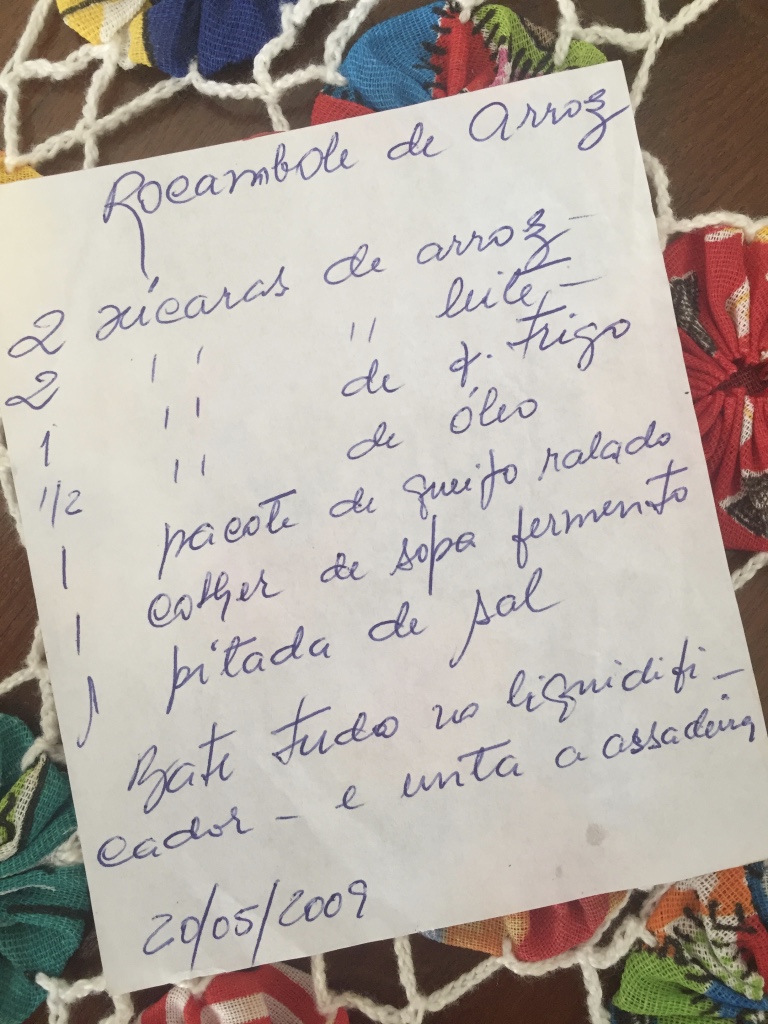 Rocambole de Arroz
2 xícaras de arroz -
2 " " leite, -
1 " de f. Trigo
1/2 " de óleo
1 pacote de queijo ralado
1 colher de sopa fermento
1 pitada de sal
Bate tudo no liquidifi-
cador - e unta a assadeira
20/05/2009